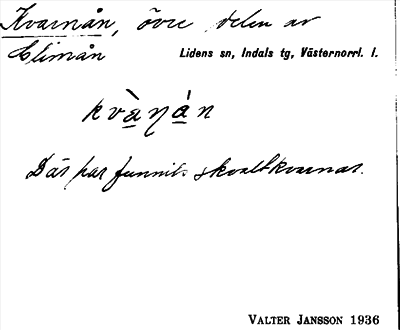 Kvarnån, övre delen av
Climån Lidens sn, Indals tg, Västernorrl. l.
kvànán
Där har funnits skvaltkvarnar.
VALTER JANSSON 1936